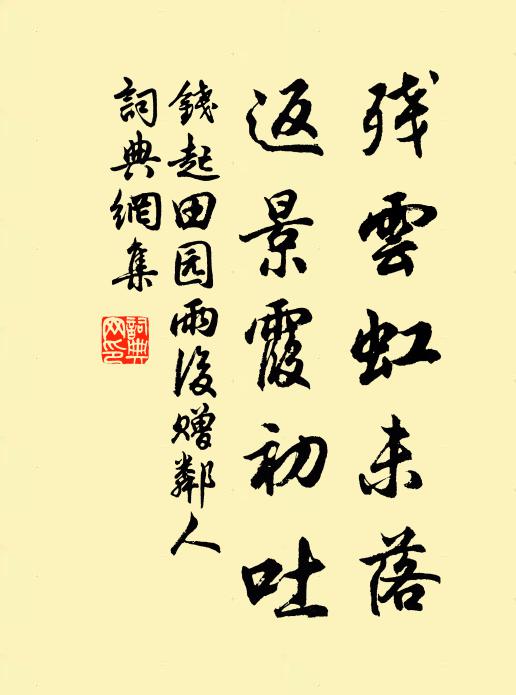 残雲虹未落
返景霞初吐
錢起田园雨後贈鄰人
詞典網集
詞典網印